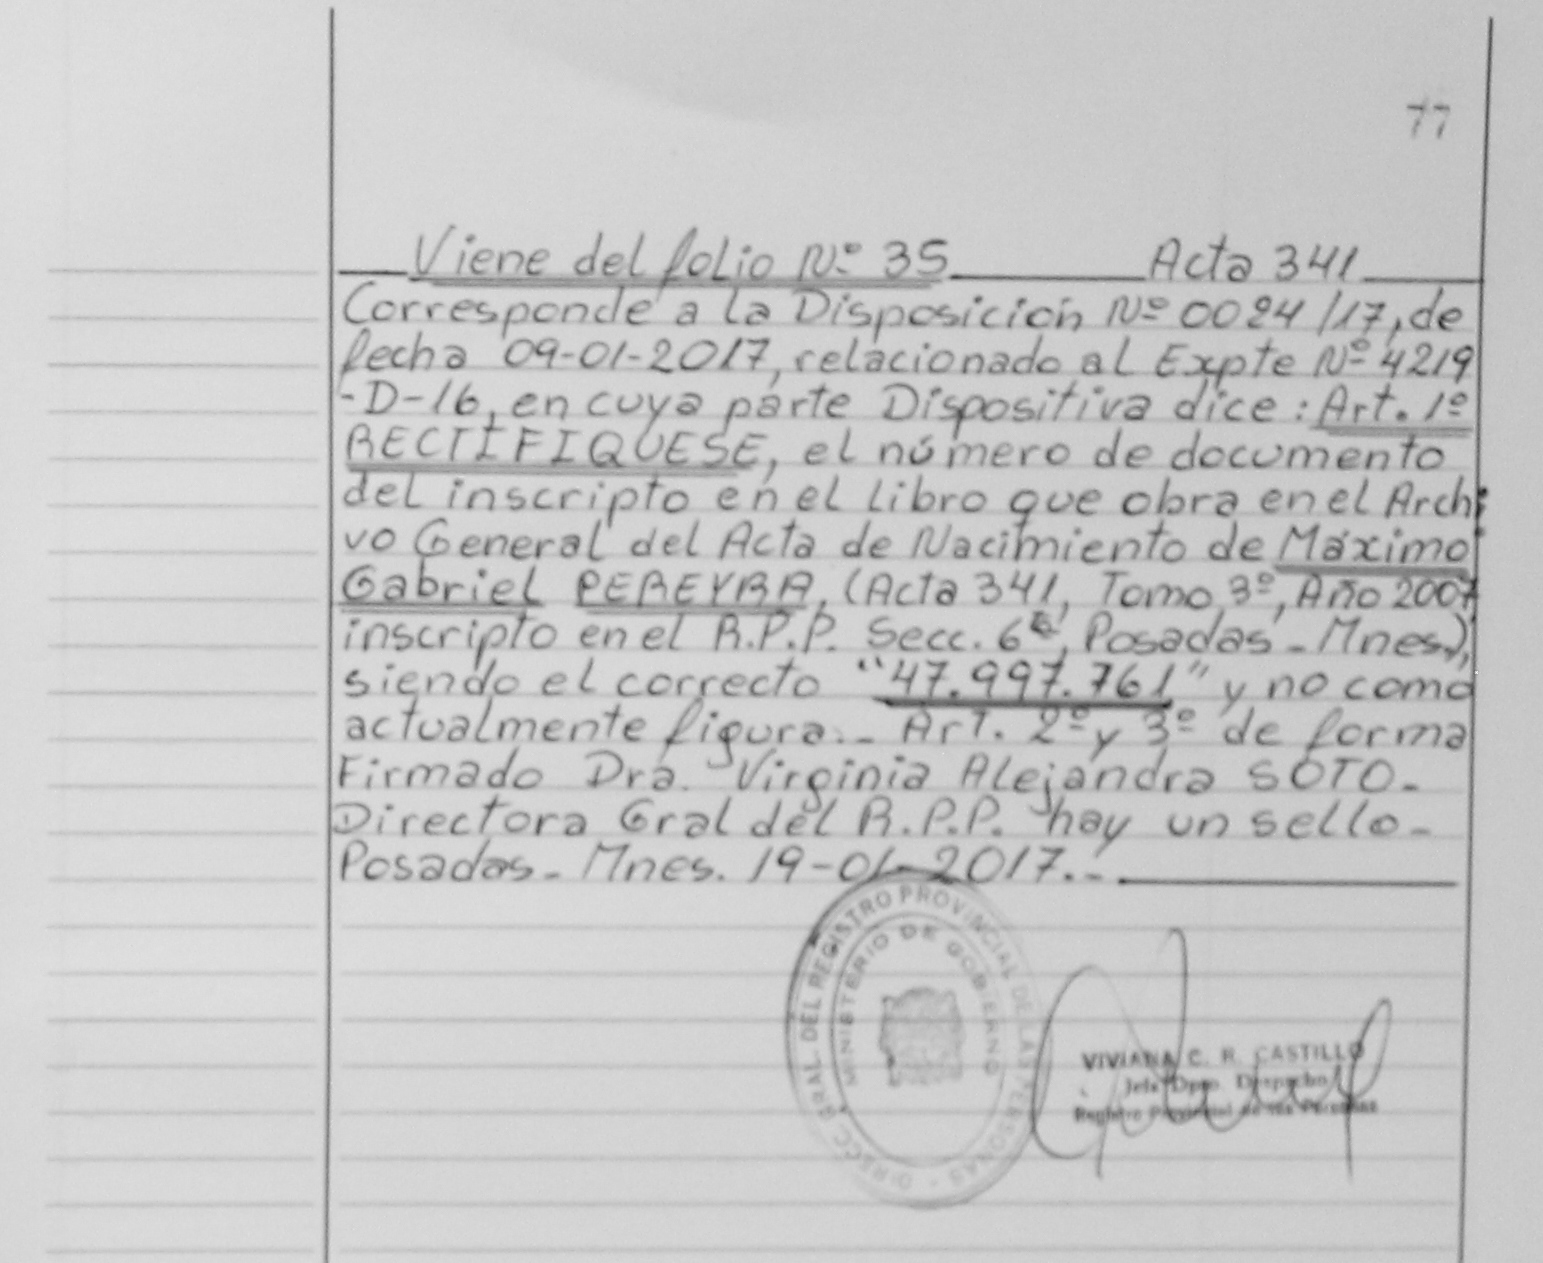 77
Viene del folio Nº 35 Acta 341
Corresponde a la Disposición Nº 0024/17, de
fecha 09-01-2017, relacionado al Expte Nº 4219
-D-16, en cuya parte Dispositiva dice: Art. 1º
RECTIFIQUESE, el número de documento
del inscripto en el libro que obra en el Archi
vo General del Acta de Nacimiento de Máximo
Gabriel PEREYRA, (Acta 341, Tomo 3º, Año 2007
inscripto en el R.P.P. Secc. 6ª, Posadas - Mnes),
siendo el correcto "47.997.761" y no como
actualmente figura.- Art. 2º y 3º de forma
Firmado Dra. Virginia Alejandra SOTO-
Directora Gral del R.P.P. hay un sello-
Posadas- Mnes. 19-01-2017.-
DIRECC. GRAL. DEL REGISTRO PROVINCIAL DE LAS PERSONAS -
MINISTERIO DE GOBIERNO
VIVIANA C. R. CASTILLO
Jefe Dpto. Despacho
Registro Provincial de las Personas